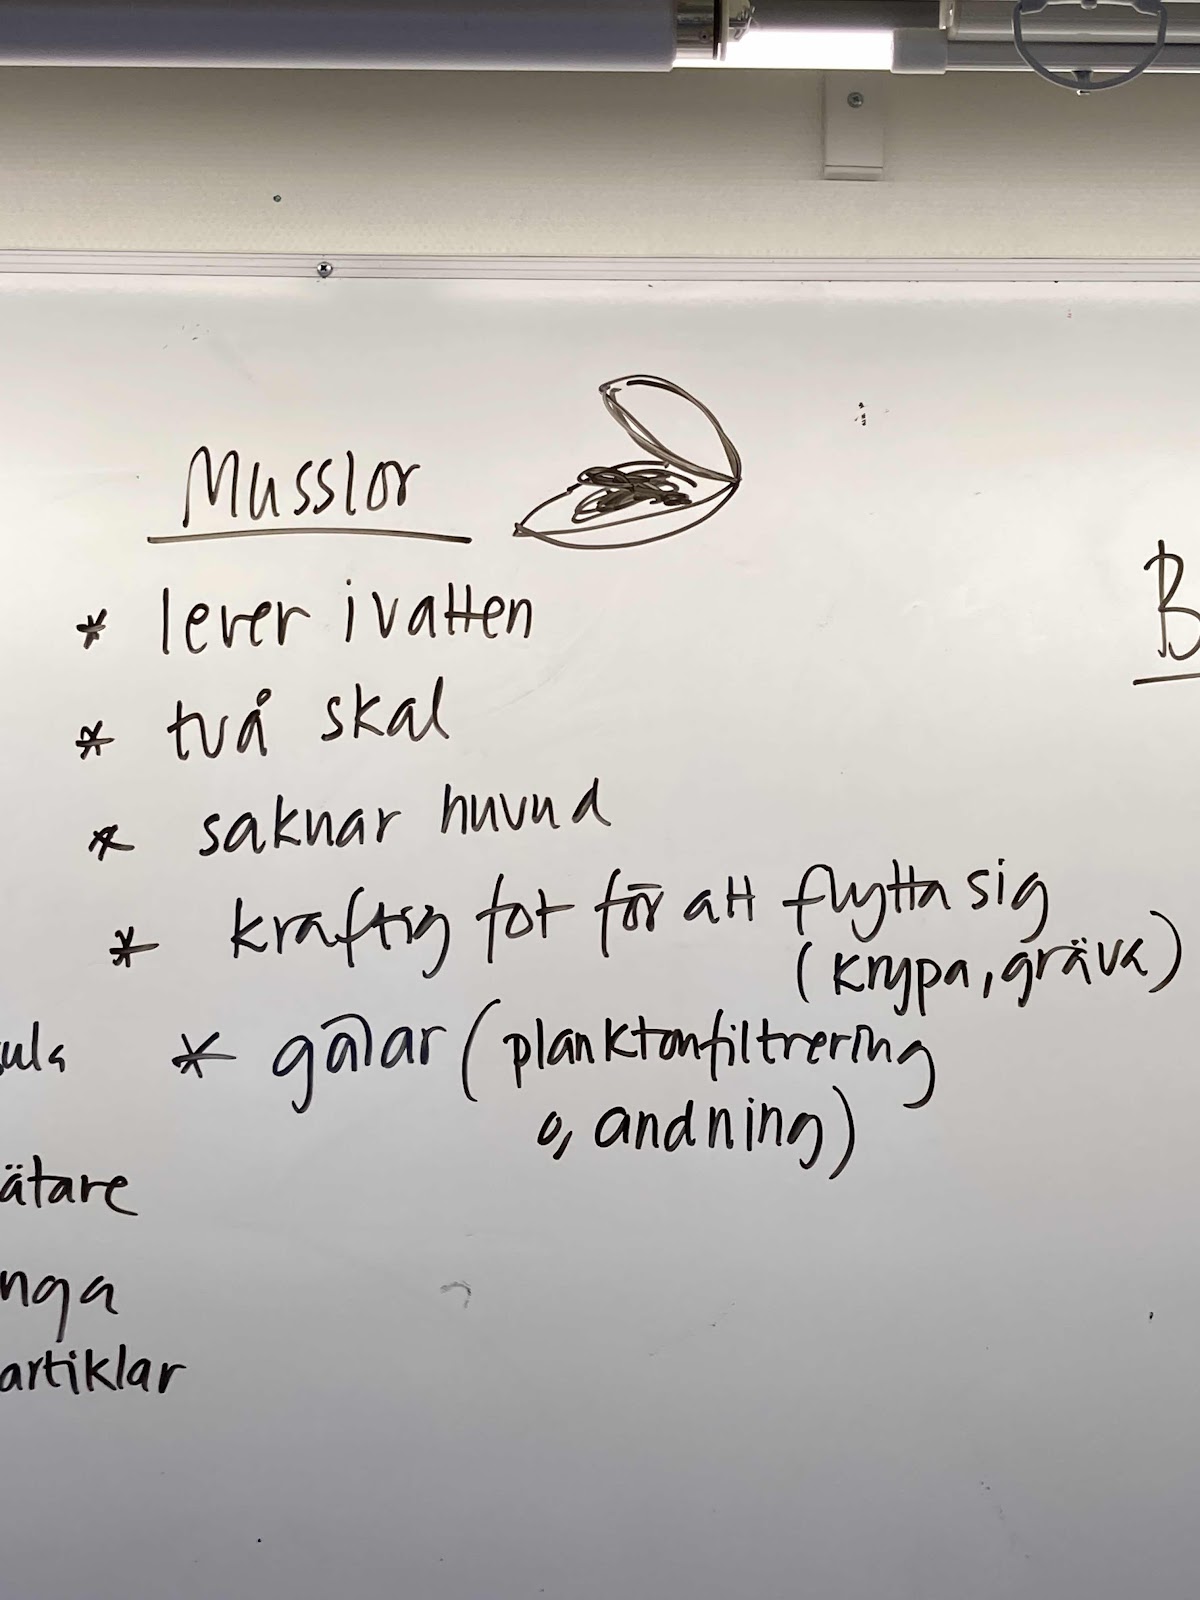 Musslor
B
* lever i vatten
* två skal
* saknar huvud
* kraftig fot för att flytta sig
(krypa, gräva)
* gälar (planktonfiltrering
o, andning)
ätare
nga
artiklar